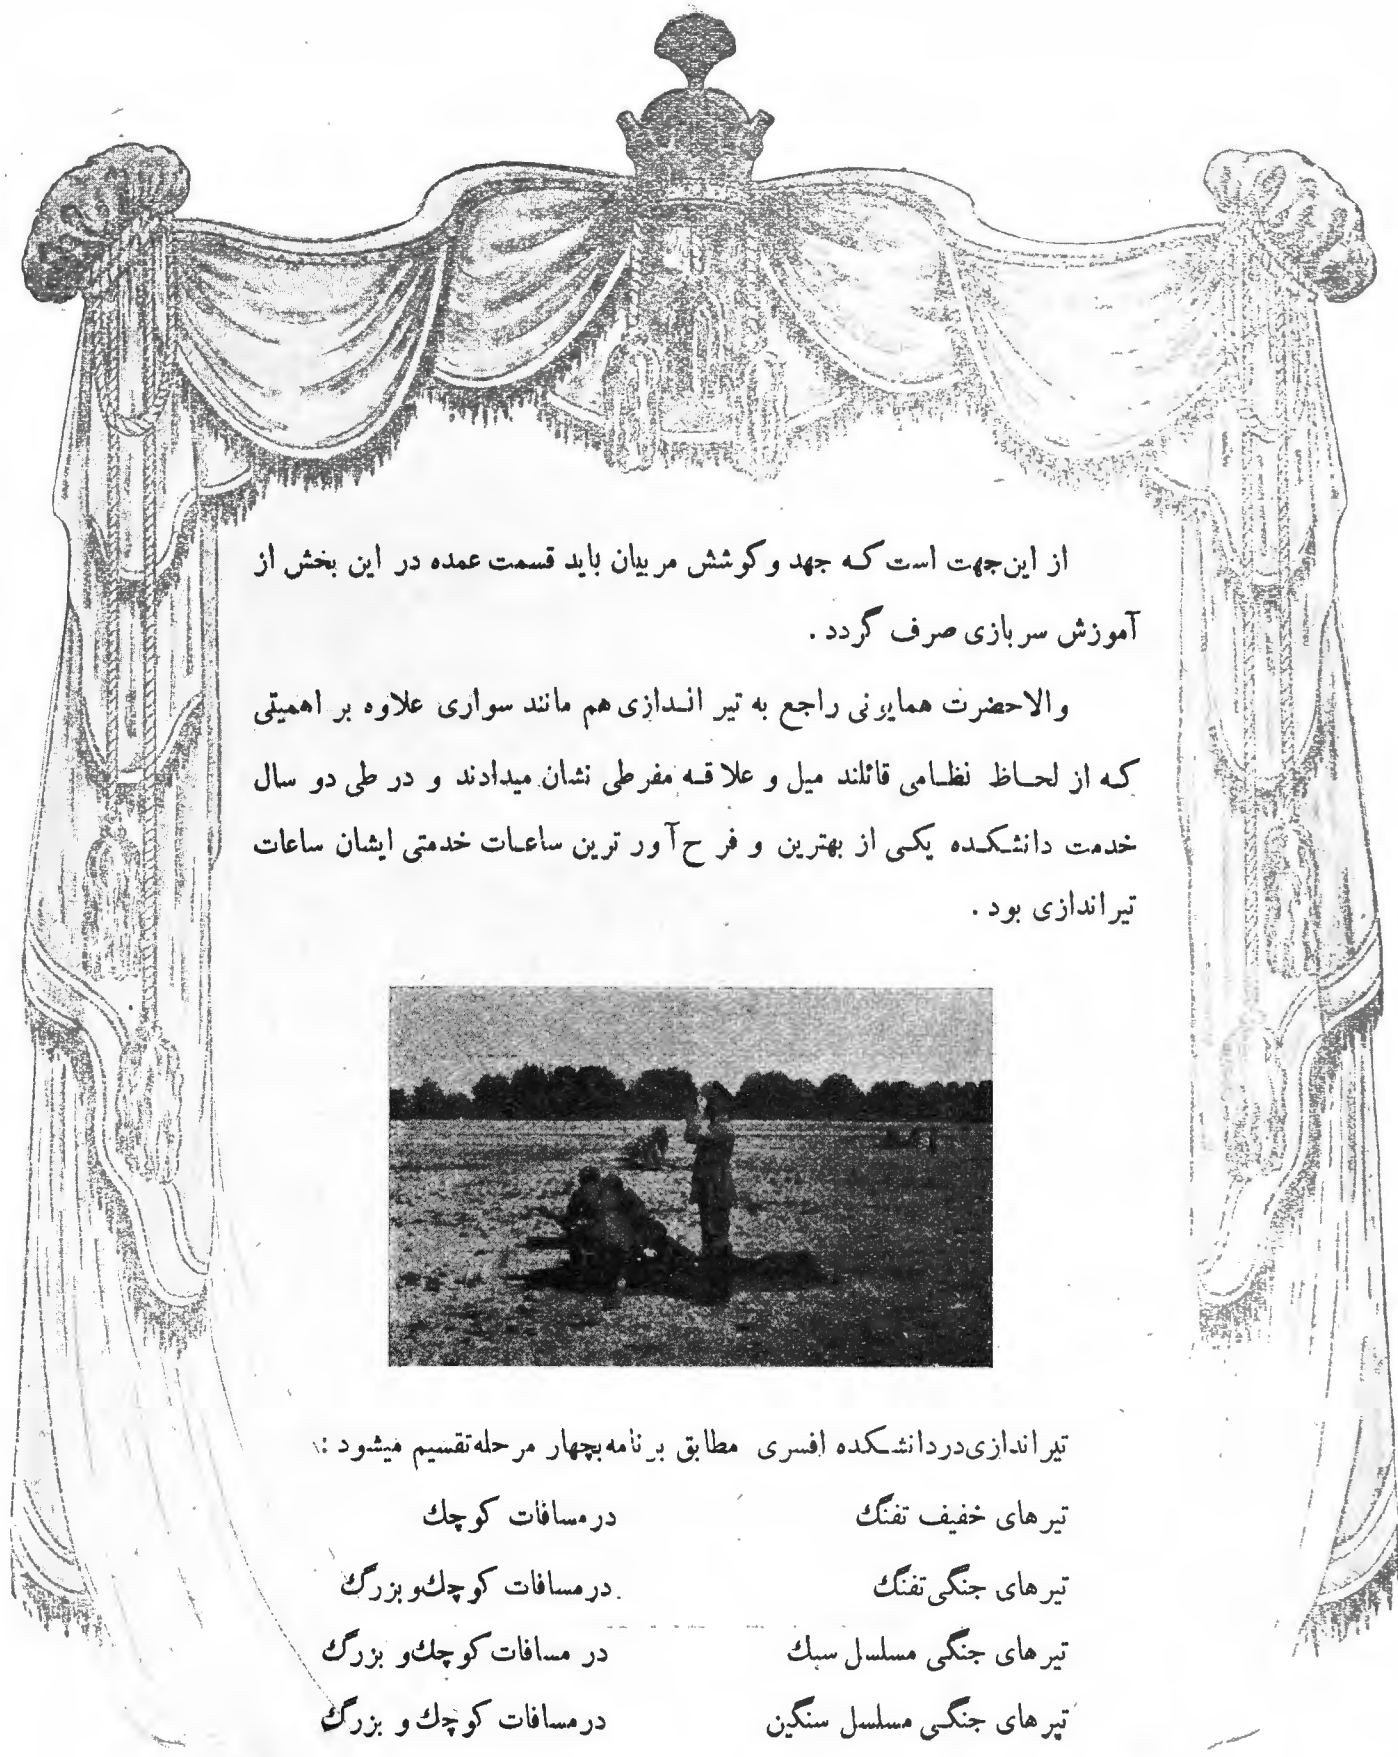 از این جهت است که جهد و کوشش مربیان باید قسمت عمده در این بخش از
آموزش سربازی صرف گردد .
والاحضرت همایونی راجع به تیر اندازی هم مانند سواری علاوه بر اهمیتی
که از لحاظ نظامی قائلند میل و علاقه مفرطی نشان میدادند و در طی دو سال
خدمت دانشکده یکی از بهترین و فرح آور ترین ساعات خدمتی ایشان ساعات
تیراندازی بود .
تیراندازی در دانشکده افسری مطابق برنامه بچهار مرحله تقسیم میشود :
تیرهای خفیف تفنگ در مسافات کوچك
تیرهای جنگی تفنگ در مسافات کوچك و بزرگ
تیرهای جنگی مسلسل سبك در مسافات کوچك و بزرگ
تیرهای جنگی مسلسل سنگین در مسافات کوچك و بزرگ